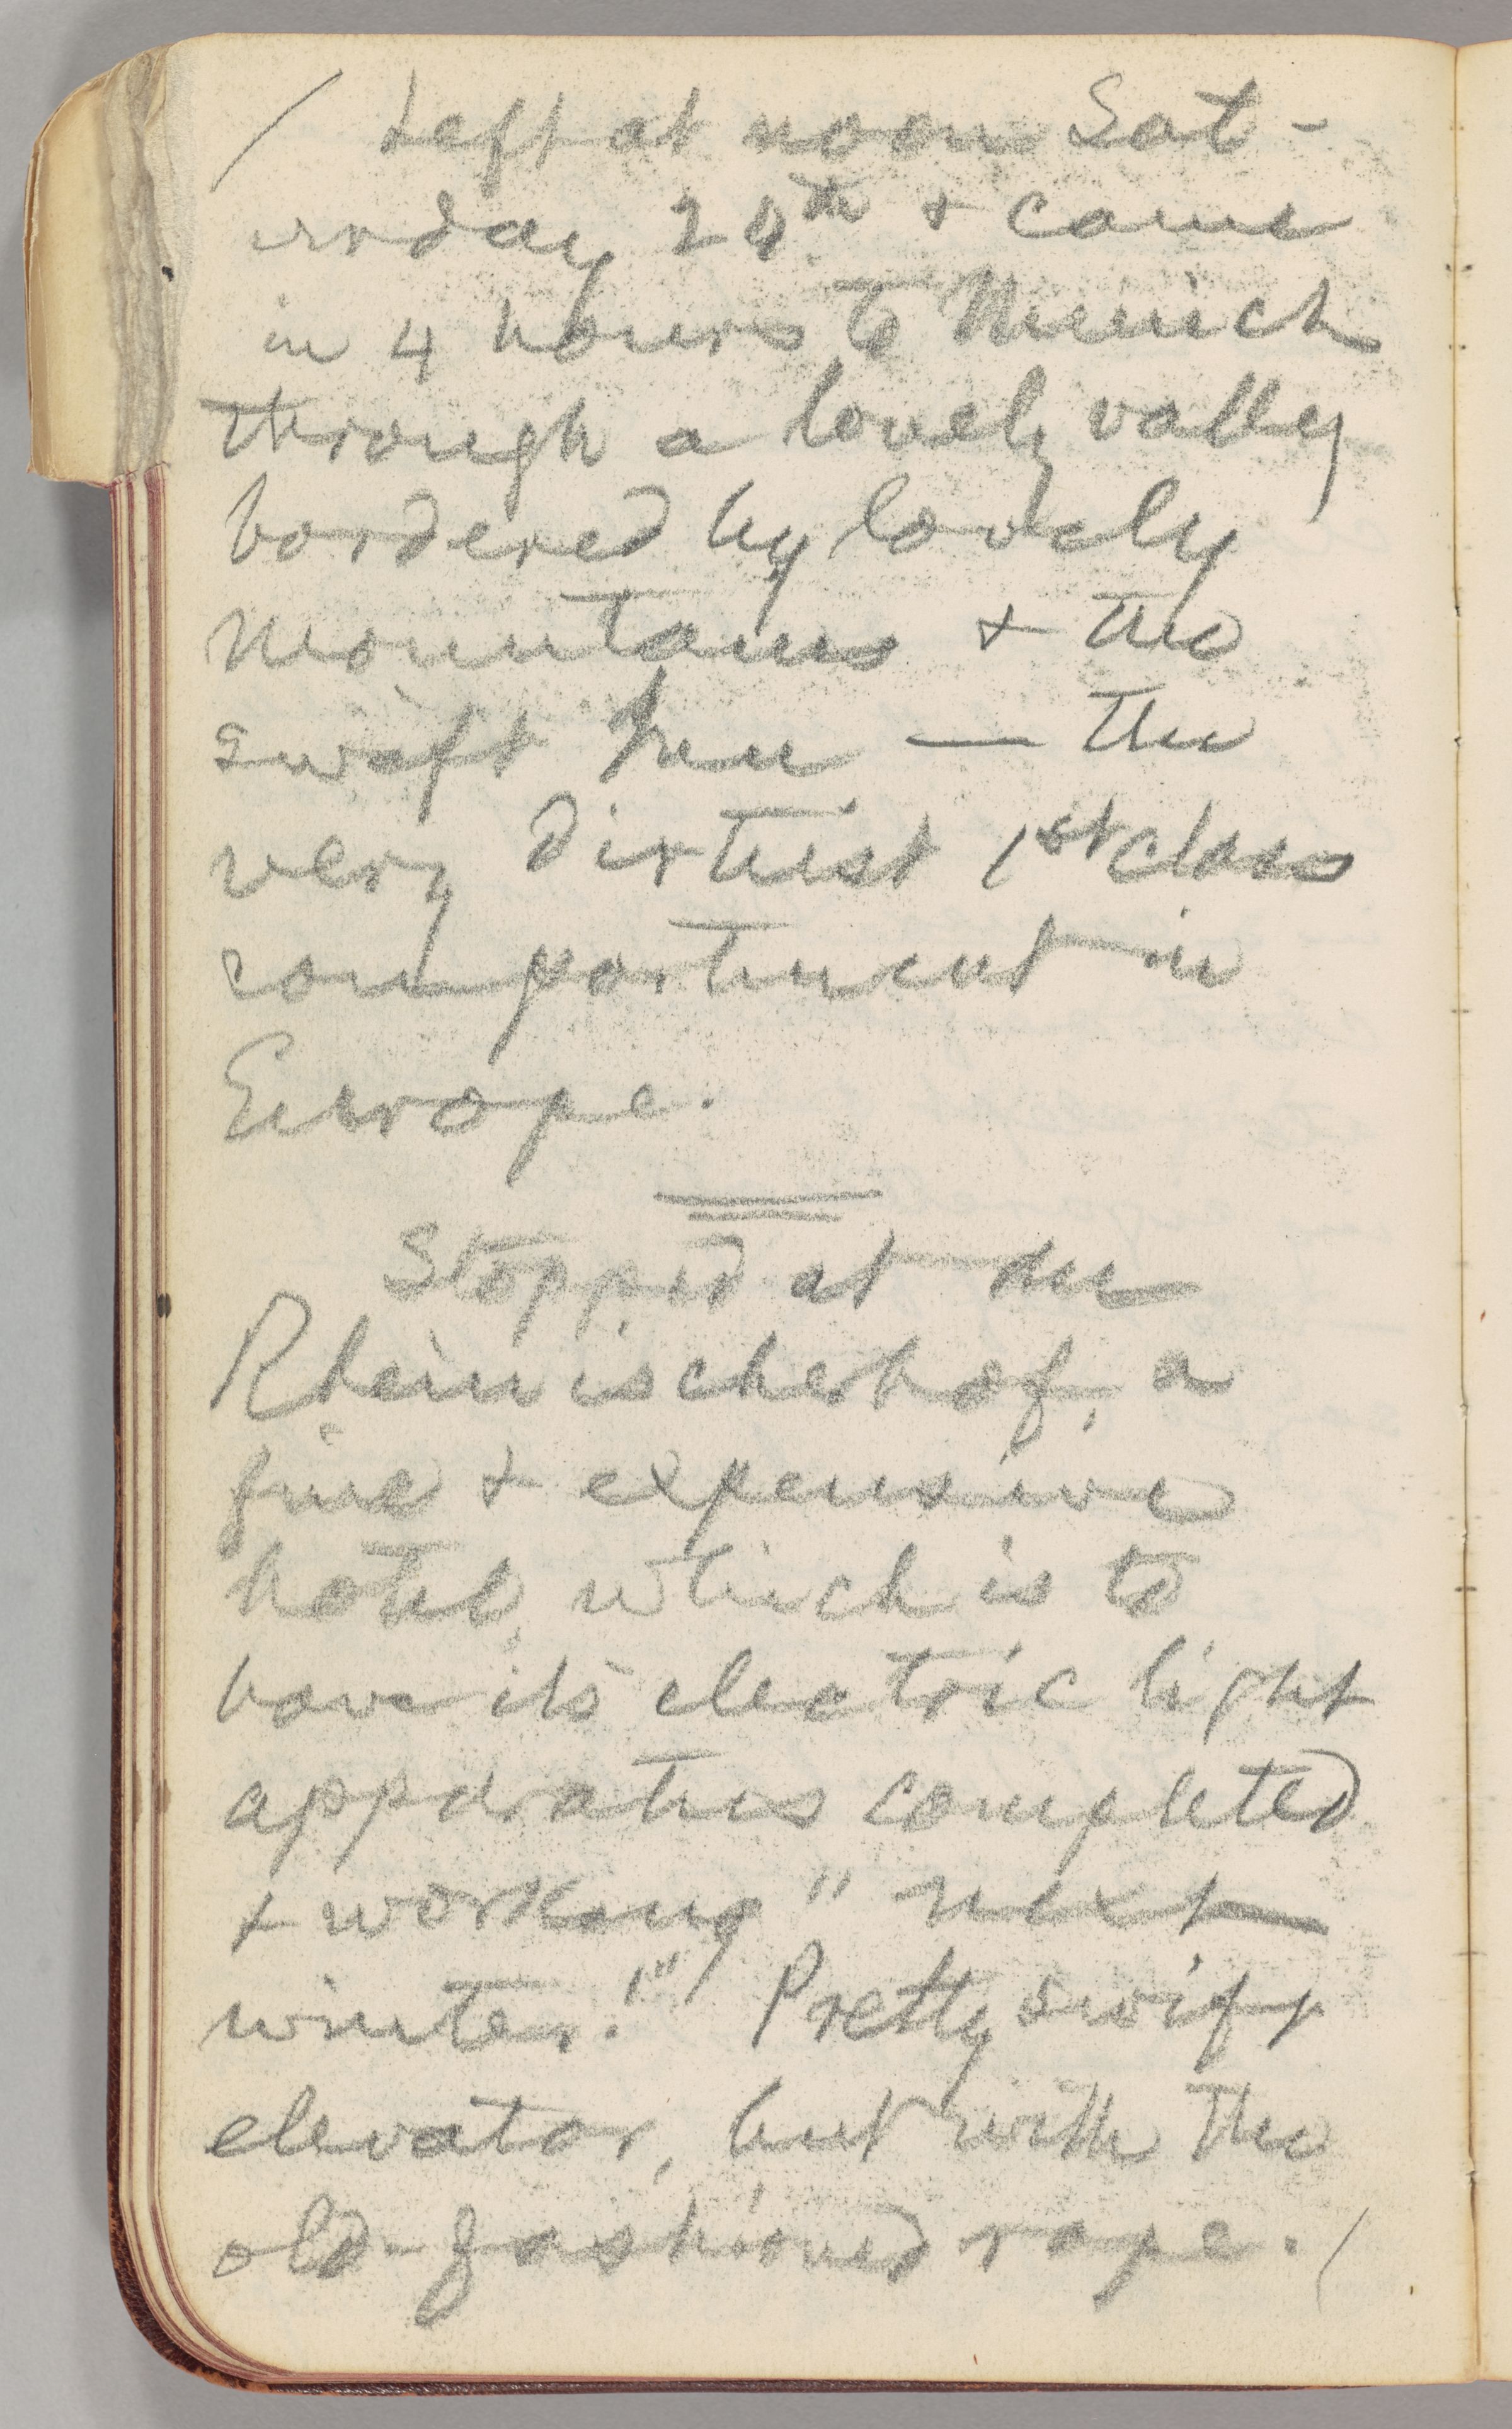 / Left at noon Sat-
urday 24th & came
in 4 hours to Munich
through a lovely valley
bordered by lovely
mountains & the
swift Inn — the
very dirtiest 1st class
compartment in
Europe.
Stopped at the
Rheinischerhof, a
fine & expensive
hotel, which is to
have its electric light
apparatus completed
& working "next
winter!" Pretty swift
elevator, but with the
old-fashioned rope. /